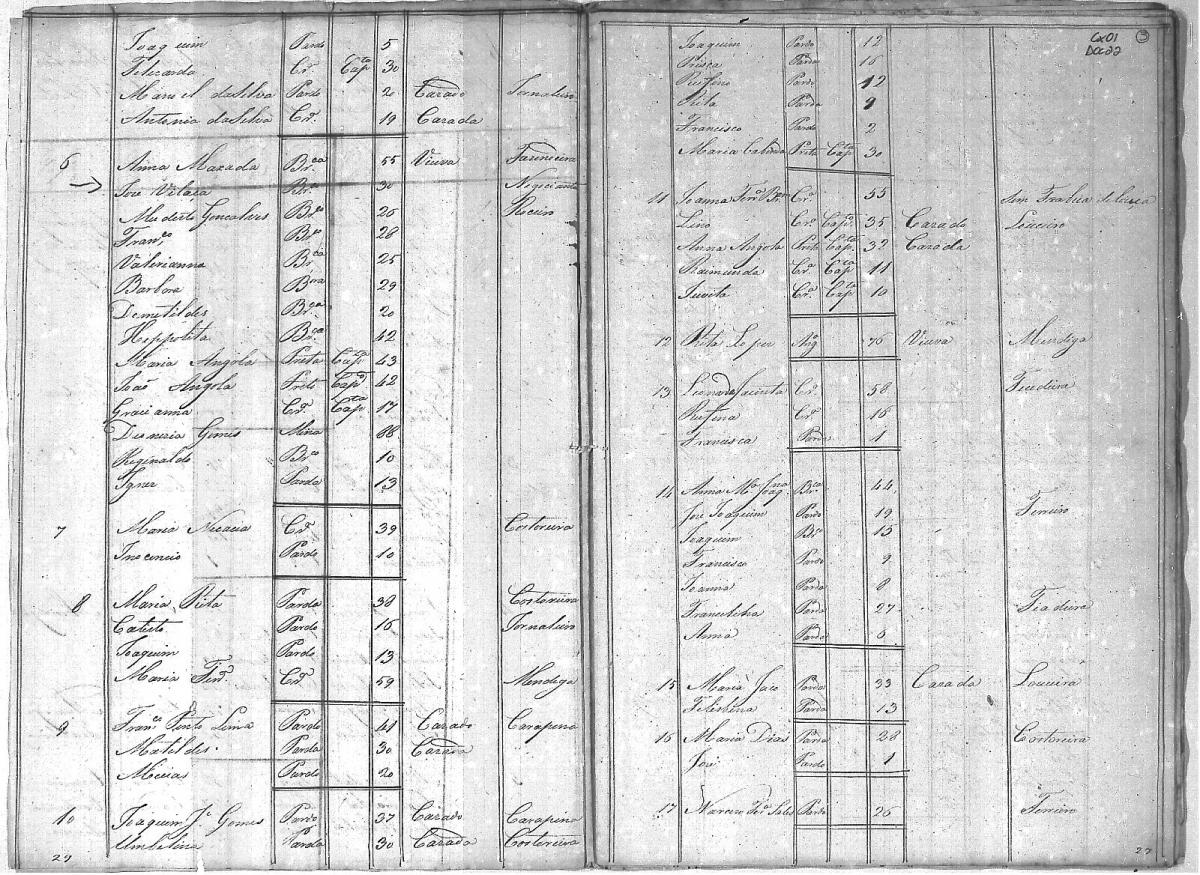 Joaquim Pardo 5
Felizarda Crª Capta 30
Manoel da Silva Pardo 20 Cazado Jornaleiro
Antonia da Silva Crª 19 Cazada
6 Anna Maxada Brca 55 Viuva Farinheira
José Vilaça Brco 30 Negociante
Muderto Gonçalves Brco 26 Roceiro
Franco Brco 28
Valerianna Brca 25
Barbora Bca 29
Demetildes Brca 20
Heppolita Brca 42
Maria Angola Preta Capta 43
João Angola Preto Capo 42
Gracianna Crª Capta 17
Gomes Mina 88
Reginaldo Brco 10
Ignez Parda 13
7 Maria Crª 39 Costoreira
Inocencio Pardo 10
8 Maria Rita Parda 38 Costoreira
Calisto Pardo 16 Jornaleiro
Joaquim Pardo 13
Maria Ferª Crª 59 Mendiga
9 Franco Pinto Lima Pardo 41 Cazado Carapina
Matildes Parda 30 Cazada
Pardo 20
10 Joaquim Je Gomes Pardo 37 Cazado Carapina
Umbelina Parda 30 Cazada Costoreira
27
Cx01
3
Doc22
Joaquim Pardo 12
Prisca Parda 16
Rufino Pardo 12
Rita Parda 9
Francisco Pardo 2
Maria Cabinda Preta Capta 30
11 Joanna Crª 55
Lino Cro Capo 35 Cazado
Anna Angola Preta Capta 32 Cazada
Raimunda Crª Capta 11
Crª Capta 10
12 Rita Lopes Ang 76 Viuva Mendiga
13 Leonarda Jacinta Crª 58
Rufina Crª 16
Francisca Parda 1
14 Anna Ma Joaqna Brca 44
José Joaquim Pardo 19 Ferreiro
Joaquim 15
Francisco Pardo 9
Joanna Parda 8
Parda 27 Fiadeira
Anna Parda 6
15 Maria Parda 33 Cazada Louceira
Parda 13
16 Maria Dias Parda 28 Costoreira
José Pardo 1
17 Sales Pardo 26 Ferreiro
27